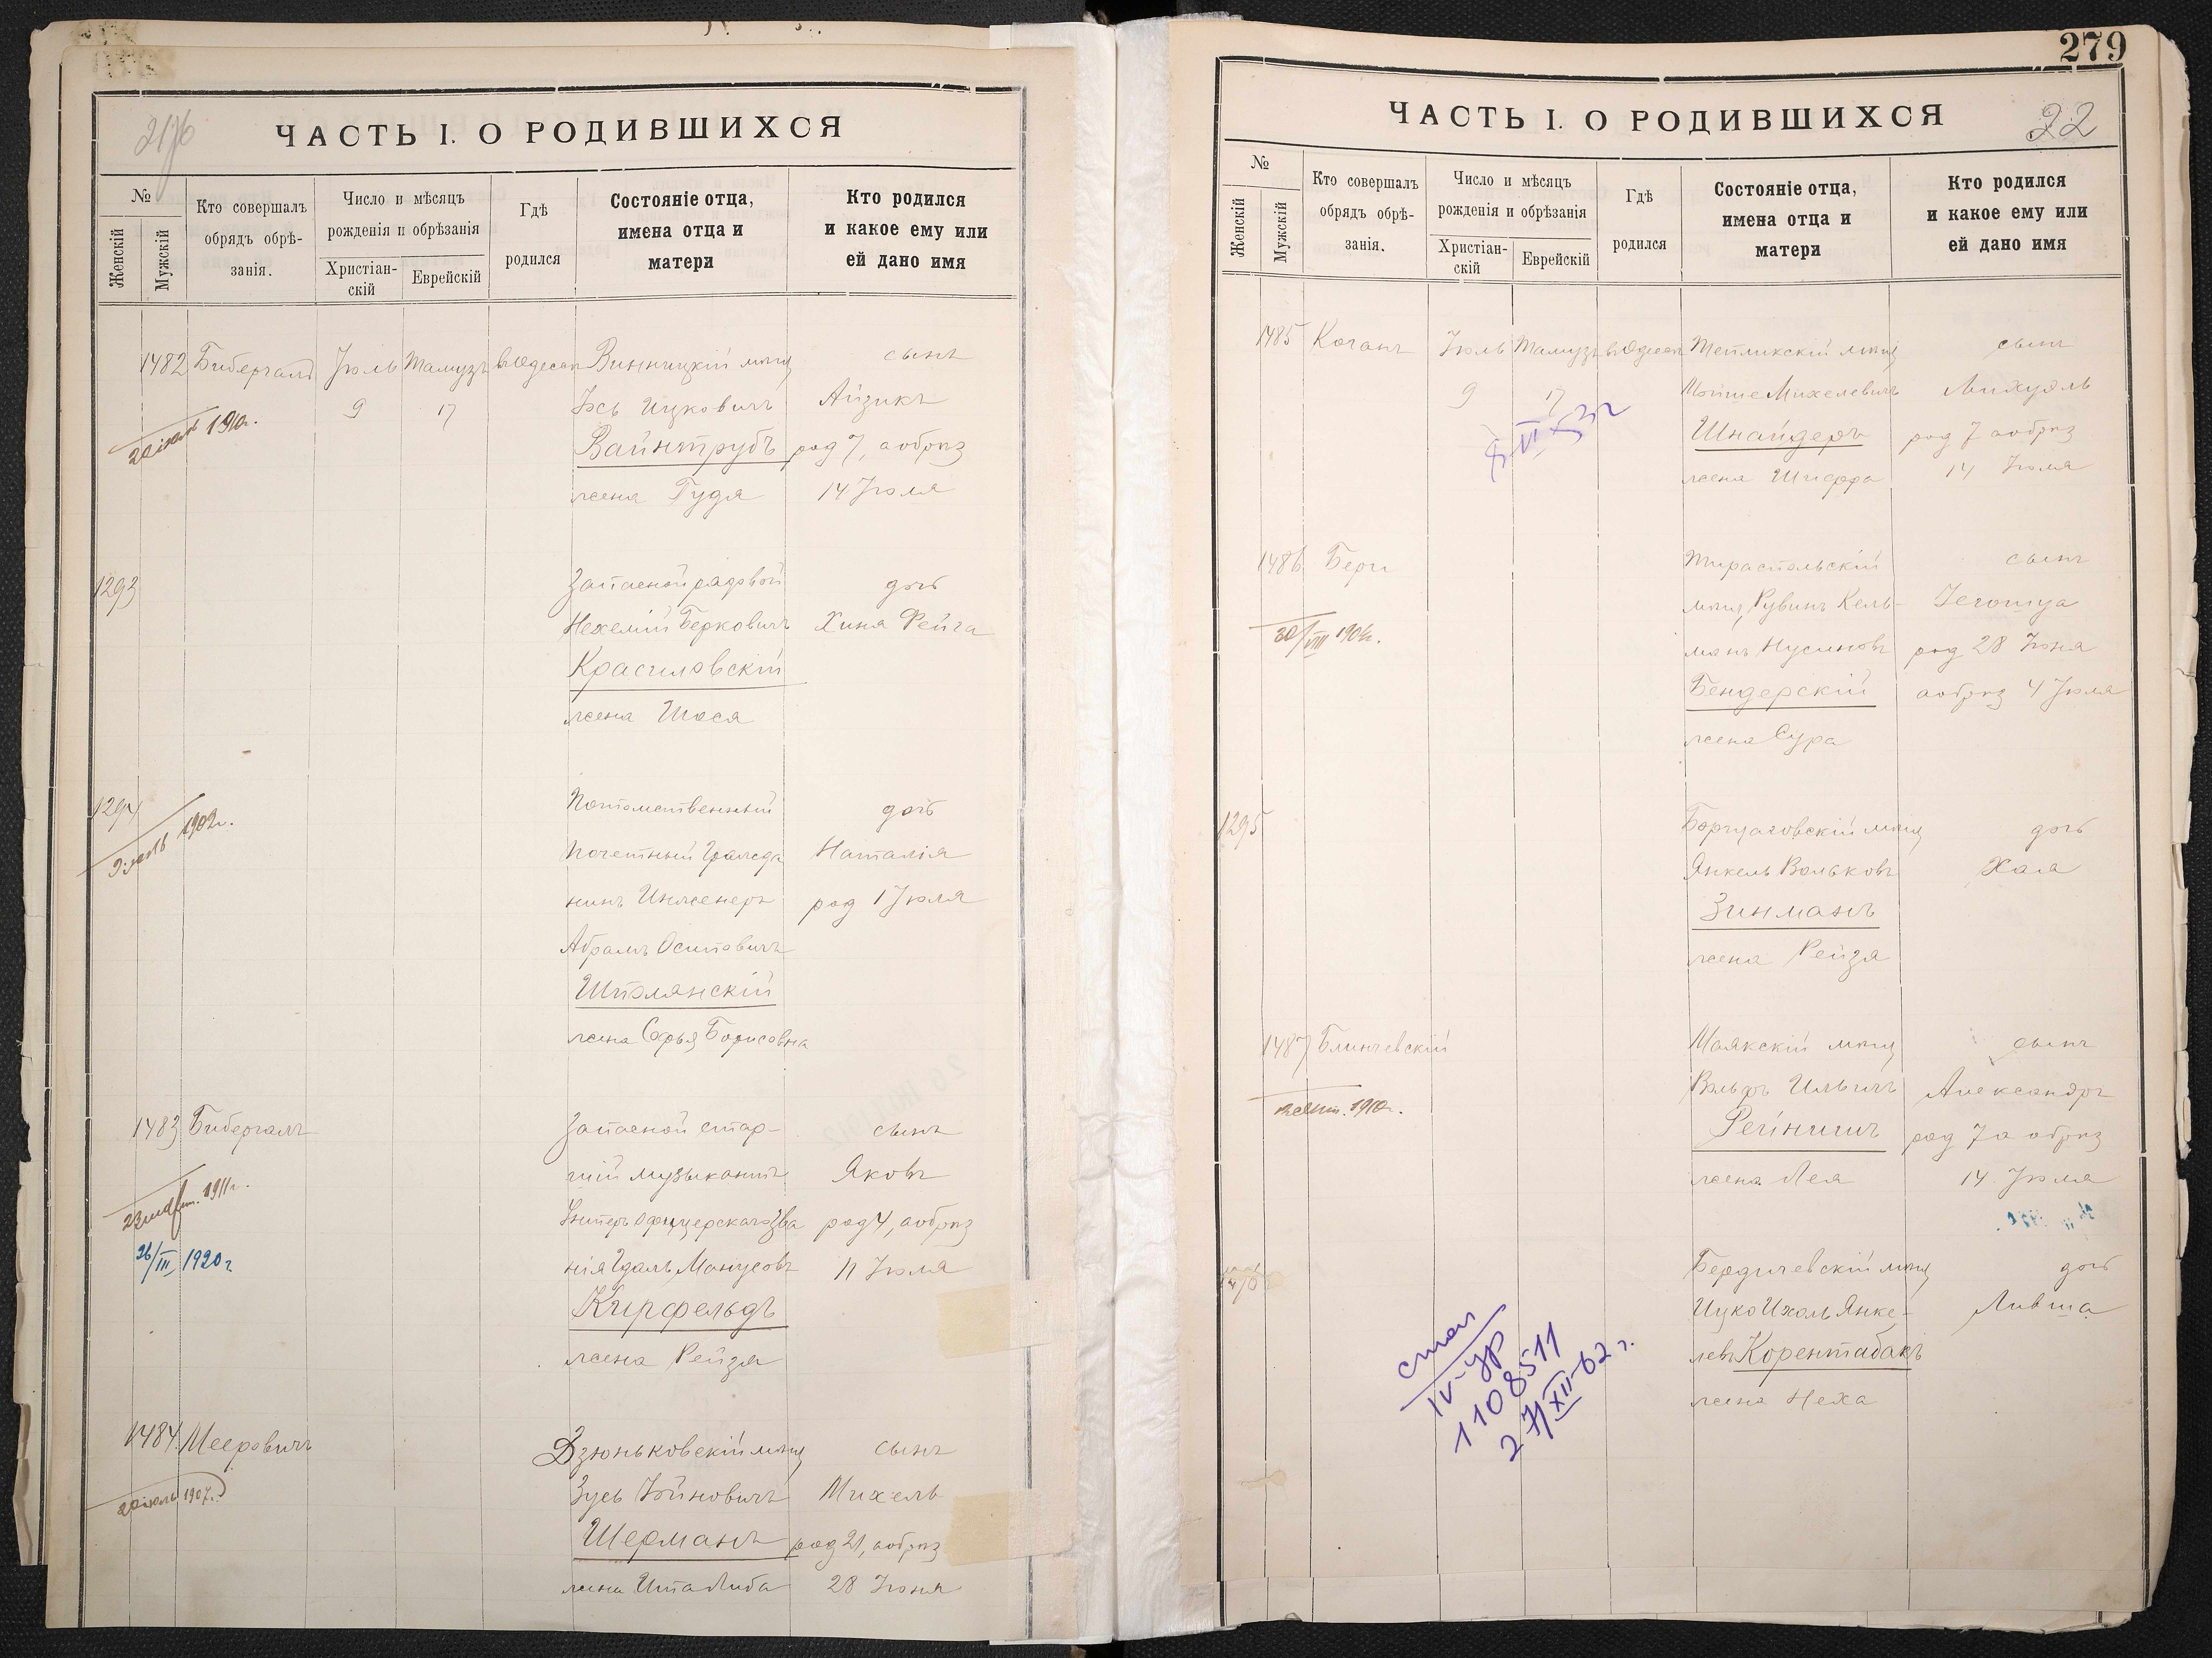 2176
ЧАСТЬ I. О РОДИВШИХСЯ
№
Женскій
Мужскій
Кто совершалъ
обрядъ обрѣ-
занія.
Число и мѣсяцъ
рожденія и обрѣзанія
Христіан-
скій
Еврейскій
Гдѣ
родился
Состояніе отца,
имена отца и
матери
Кто родился
и какое ему или
ей дано имя
1482 Бибергалъ Іюль Тамузъ въ Одессѣ Винницкій мѣщ сынъ
9 17 Іось Ицковичъ Айзикъ
1910г.
Вайнтрубъ род 7, а обрѣз
жена Гудя 14 Іюля
1293 Запасной рядовой дочь
Нехемій Берковичъ Хина Фейга
Красиловскій
жена Шося
1294 Потомственный дочь
1902г.
Почетный Гражда Наталія
нинъ Инженеръ род 1 Іюля
Абрамъ Осиповичъ
Шполянскій
жена Софья Борисовна
1483 Бибергалъ Запасной стар- сынъ
шій музыкантъ Яковъ
1911г.
Унтеръ офицерскаго зва род 4, а обрѣз
26/III 1920 г
нія Гдаль Манусовъ 11 Іюля
Кирфельдъ
жена Рейзя
1484 Мееровичъ Дзюньковскій мѣщ сынъ
Зусь Хоиновичъ Михель
20 іюль 1907г.
Шерманъ род 21, а обрѣз
жена Ита Либа 28 Іюня
279
22
ЧАСТЬ I. О РОДИВШИХСЯ
№
Женскій
Мужскій
Кто совершалъ
обрядъ обрѣ-
занія.
Число и мѣсяцъ
рожденія и обрѣзанія
Христіан-
скій
Еврейскій
Гдѣ
родился
Состояніе отца,
имена отца и
матери
Кто родился
и какое ему или
ей дано имя
1485 Коганъ Іюль Тамузъ въ Одессѣ Тепликскій мѣщ сынъ
9 17 Мойше Михелевичъ Михуэль
Шнайдеръ род 7 а обрѣз
жена Шифра 14 Іюля
1486 Берг Тираспольскій сынъ
мѣщ Рувинъ Кель- Іегошуа
30/VIII 1904г.
манъ Нусиновъ род 28 Іюня
Бендерскій а обрѣз 4 Іюля
жена Сура
1295 Борщаговскій мѣщ дочь
Янкель Вольковъ Хая
Зинманъ
жена Рейзя
1487 Блинчевскій Маякскій мѣщ сынъ
Вольфъ Ильичъ Александръ
1910г.
Рейнишъ род 7 а обрѣз
жена Лея 14 Іюля
Бердичевскій мѣщ дочь
Ицко Ихель Янке- Ливша
левъ Корентабакъ
жена Неха
IV-УР
1108511
27/XII-62 г.